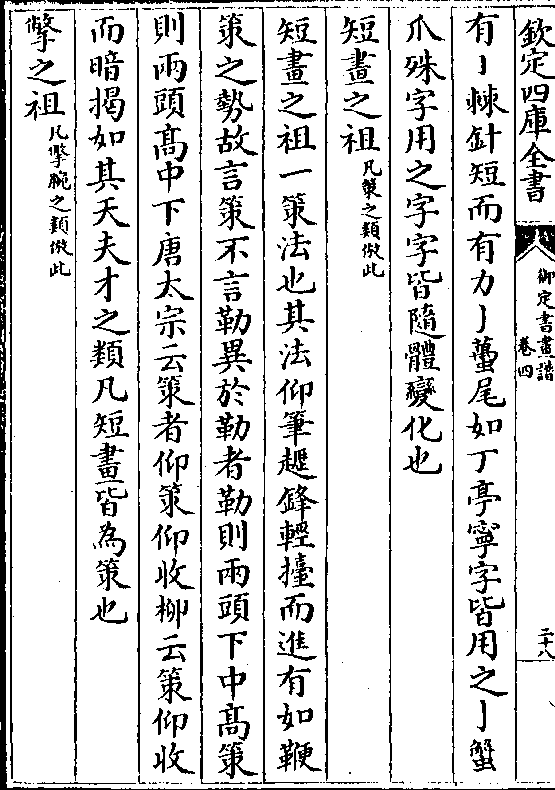 欽定四庫全書
御定書畫譜
卷四
二十八
有亅棘針短而有力亅蠆尾如丁亭寧字皆用之亅蟹
爪殊字用之字字皆隨體變化也
短畫之祖凡策之類倣此
短畫之祖一策法也其法仰筆趯鋒輕擡而進有如鞭
策之勢故言策不言勒異於勒者勒則兩頭下中髙策
則兩頭髙中下唐太宗云策者仰策仰收柳云策仰收
而暗揭如其天夫才之類凡短畫皆為策也
擎之祖凡擎腕之類倣此